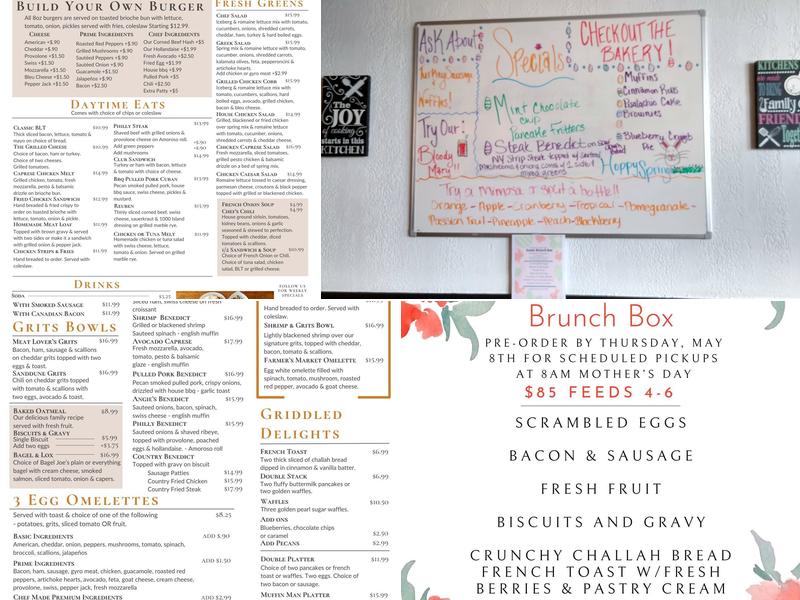 Build Your Own Burger
All 8oz burgers are served on toasted brioche bun with lettuce,
tomato, onion, pickles served with fries, coleslaw Starting $12.99.
Cheese
American +$.90
Cheddar +$.90
Provolone +$1.50
Swiss +$1.50
Mozzarella +$1.50
Bleu Cheese +$1.50
Pepper Jack +$1.50
Prime Ingredients
Roasted Red Peppers +$.90
Grilled Mushrooms +$.90
Sautéed Peppers +$.90
Sautéed Onion +$.90
Guacamole +$1.50
Jalapeños +$.90
Bacon +$2.50
Chef Ingredients
Our Corned Beef Hash +$5
Our Hollandaise +$1.99
Fresh Avocado +$2.50
Fried Egg +$1.99
House bbq +$.99
Pulled Pork +$5
Chili +$2.50
Extra Patty +$5
Daytime Eats
Comes with choice of chips or coleslaw
Classic BLT $10.99
Thick sliced bacon, lettuce, tomato &
mayo on choice of bread.
The Grilled Cheese $10.99
Choice of bacon, ham or turkey.
Choice of two cheeses.
Grilled tomatoes.
Caprese Chicken Melt $14.99
Grilled chicken, tomato, fresh
mozzarella, pesto & balsamic
drizzle on brioche bun.
Fried Chicken Sandwich $12.99
Hand breaded & fried crispy to
order on toasted brioche with
lettuce, tomato, onion & pickle.
Homemade Meat Loaf $11.99
Topped with brown gravy & served
with two sides or make it a sandwich
with grilled onion & pepper jack.
Chicken Strips & Fries $11.99
Hand breaded to order. Served with
coleslaw.
Philly Steak $13.99
Shaved beef with grilled onions &
provolone cheese on Amoroso roll.
Add green peppers +$.90
Add mushrooms +$.90
Club Sandwich $14.99
Turkey or ham with bacon, lettuce
& tomato with choice of cheese.
BBQ Pulled Pork Cuban $13.99
Pecan smoked pulled pork, house
bbq sauce, swiss cheese, pickles &
mustard.
Reuben $13.99
Thinly sliced corned beef, swiss
cheese, sauerkraut & 1000 Island
dressing on grilled marble rye.
Chicken or Tuna Melt $12.99
Homemade chicken or tuna salad
with swiss cheese, lettuce,
tomato & onion. Served on grilled
marble rye.
Drinks
Soda $3.25
Fresh Greens
Chef Salad $15.99
Iceberg & romaine lettuce mix with tomato,
cucumber, onions, shredded carrots,
cheddar, ham, turkey & hard boiled eggs.
Greek Salad $15.99
Spring mix & romaine lettuce mix with tomato,
cucumber, onions, shredded carrots,
kalamata olives, feta, pepperoncini &
artichoke hearts.
Add chicken or gyro meat +$2.99
Grilled Chicken Cobb $15.99
Iceberg & romaine lettuce mix with
tomato, cucumbers, scallions, hard
boiled eggs, avocado, grilled chicken,
bacon & bleu cheese.
House Chicken Salad $14.99
Grilled, blackened or fried chicken
over spring mix & romaine lettuce
with tomato, cucumber, onions,
shredded carrots & cheddar cheese.
Chicken Caprese Salad $16.99
Fresh mozzarella, sliced tomatoes,
grilled pesto chicken & balsamic
drizzle on a bed of spring mix.
Chicken Caesar Salad $14.99
Romaine lettuce tossed in caesar dressing,
parmesan cheese, croutons & black pepper
topped with grilled or blackened chicken.
French Onion Soup $4.99
Chef's Chili $4.99
House ground sirloin, tomatoes,
kidney beans, onions & garlic
seasoned & slewed to perfection.
Topped with cheddar, diced
tomatoes & scallions.
1/2 Sandwich & Soup $10.99
Choice of French Onion or Chili.
Choice of tuna salad, chicken
salad, BLT or grilled cheese.
FOLLOW US
FOR WEEKLY
SPECIALS
The
JOY
of cooking
starts in this
KITCHEN
ASK About
Waffles!
Try Our:
Bloody
Mary!!!
Specials
Mint Chocolate
chip
Pancake Fritters
Steak Benedict
CHECKOUT THE
BAKERY!
Muffins
Cinnamon Rolls
Pistachio Cake
Brownies
Blueberry Crumb
Pie
Hoppy Spring
Try a mimosa or spritz a bottle!!
Orange - Apple - Cranberry - Tropical - Pomegranate -
Passion Fruit - Pineapple - Peach - Blackberry
KITCHENS
Family
FRIENDS
With Smoked Sausage $11.99
With Canadian Bacon $11.99
Grits Bowls
Meat Lover's Grits $16.99
Bacon, ham, sausage & scallions
on cheddar grits topped with two
eggs & toast.
Sanddune Grits $16.99
Chili on cheddar grits topped
with tomato & scallions with
two eggs, avocado & toast.
Baked Oatmeal $8.99
Our delicious family recipe
served with fresh fruit.
Biscuits & Gravy
Single Biscuit $5.99
Add two eggs +$3.75
Bagel & Lox $16.99
Choice of Bagel Joe's plain or everything
bagel with cream cheese, smoked
salmon, sliced tomato, onion & capers.
sliced ham, swiss cheese on fresh
croissant
Shrimp Benedict $16.99
Grilled or blackened shrimp
Sauteed spinach - english muffin
Avocado Caprese $17.99
Fresh mozzarella, avocado,
tomato, pesto & balsamic
glaze - english muffin
Pulled Pork Benedict $16.99
Pecan smoked pulled pork, crispy onions,
drizzled with house bbq - garlic toast
Angie's Benedict $15.99
Sauteed onions, bacon, spinach,
swiss cheese - english muffin
Philly Benedict $15.99
Sauteed onions & shaved ribeye,
topped with provolone, poached
eggs & hollandaise. - Amoroso roll
Country Benedict
Topped with gravy on biscuit
Sausage Patties $14.99
Country Fried Chicken $15.99
Country Fried Steak $17.99
3 Egg Omelettes
Served with toast & choice of one of the following $8.25
- potatoes, grits, sliced tomato OR fruit.
Basic Ingredients ADD $.90
American, cheddar, onion, peppers, mushrooms, tomato, spinach,
broccoli, scallions, jalapeños
Prime Ingredients ADD $1.50
Bacon, ham, sausage, gyro meat, chicken, guacamole, roasted red
peppers, artichoke hearts, avocado, feta, goat cheese, cream cheese,
provolone, swiss, pepper jack, fresh mozzarella
Chef Made Premium Ingredients ADD $2.99
Hand breaded to order. Served with
gravy.
Shrimp & Grits Bowl $16.99
Lightly blackened shrimp over our
signature grits, topped with cheddar,
bacon, tomato & scallions.
Farmer's Market Omelette $15.99
Egg white omelette filled with
spinach, tomato, mushroom, roasted
red pepper, avocado & goat cheese.
Griddled
Delights
French Toast $6.99
Two thick sliced of challah bread
dipped in cinnamon & vanilla batter.
Double Stack $6.99
Two fluffy buttermilk pancakes or
two golden waffles.
Waffles $10.50
Three golden pearl sugar waffles.
Add ons
Blueberries, chocolate chips
or caramel $2.50
Add Pecans $2.99
Double Platter $11.99
Choice of two pancakes or french
toast or waffles. Two eggs. Choice of
two bacon or sausage.
Muffin Man Platter $15.99
Brunch Box
PRE-ORDER BY THURSDAY, MAY
8TH FOR SCHEDULED PICKUPS
AT 8AM MOTHER'S DAY
$85 FEEDS 4-6
SCRAMBLED EGGS
BACON & SAUSAGE
FRESH FRUIT
BISCUITS AND GRAVY
CRUNCHY CHALLAH BREAD
FRENCH TOAST W/FRESH
BERRIES & PASTRY CREAM